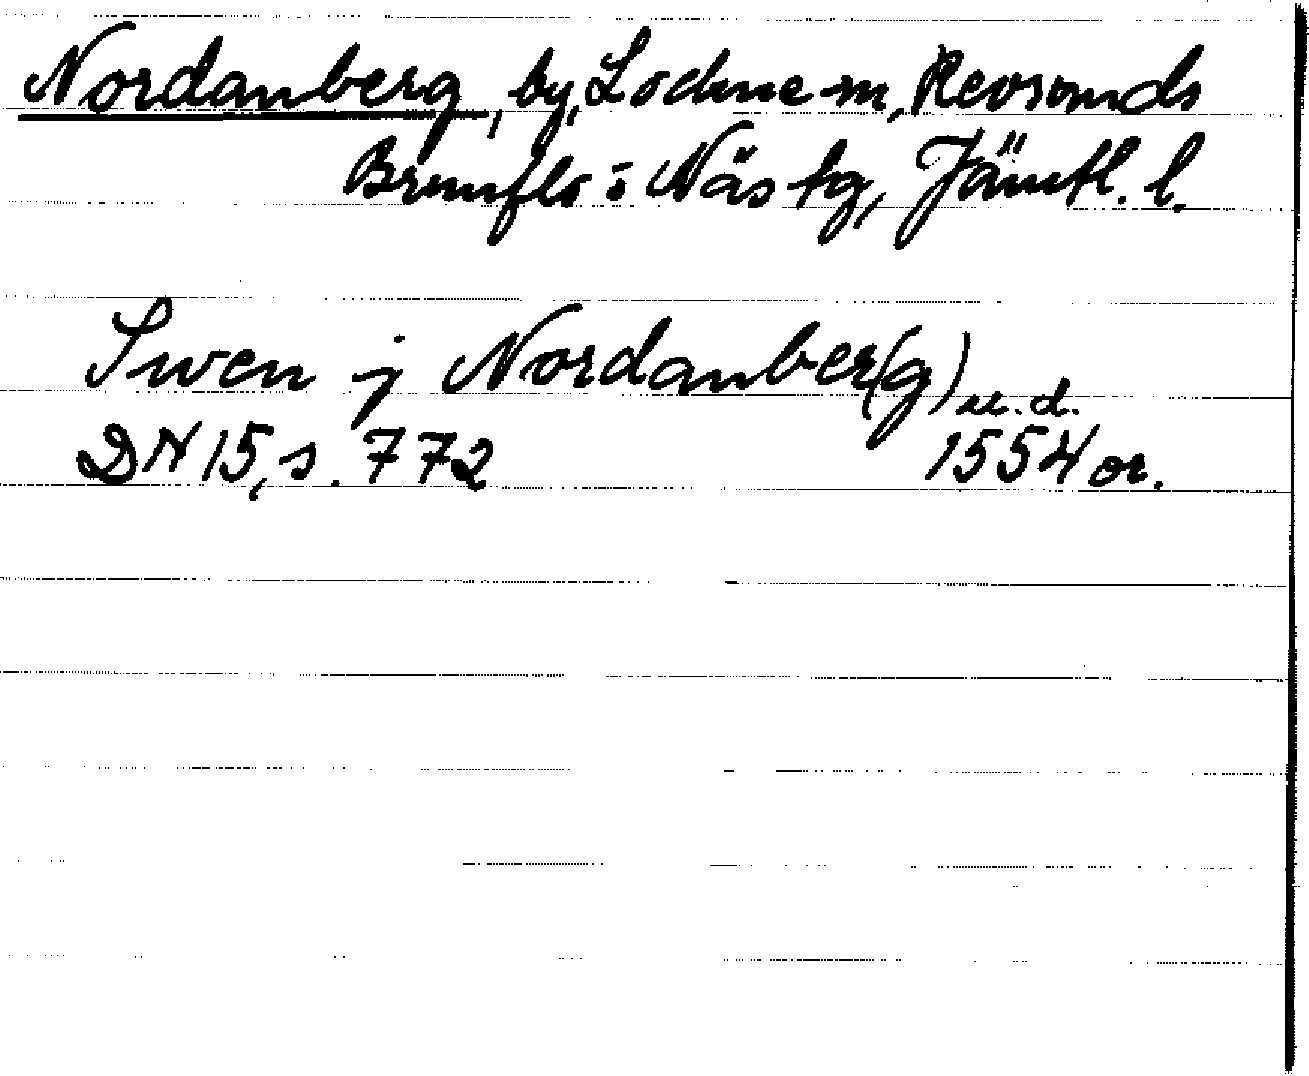 Nordanberg, by, Lockne sn, Revsunds
Brunflo o Näs tg, Jämtl. l.
Swen j Nordanber(g) u.d.
DN 15, s. 772 1554 or.